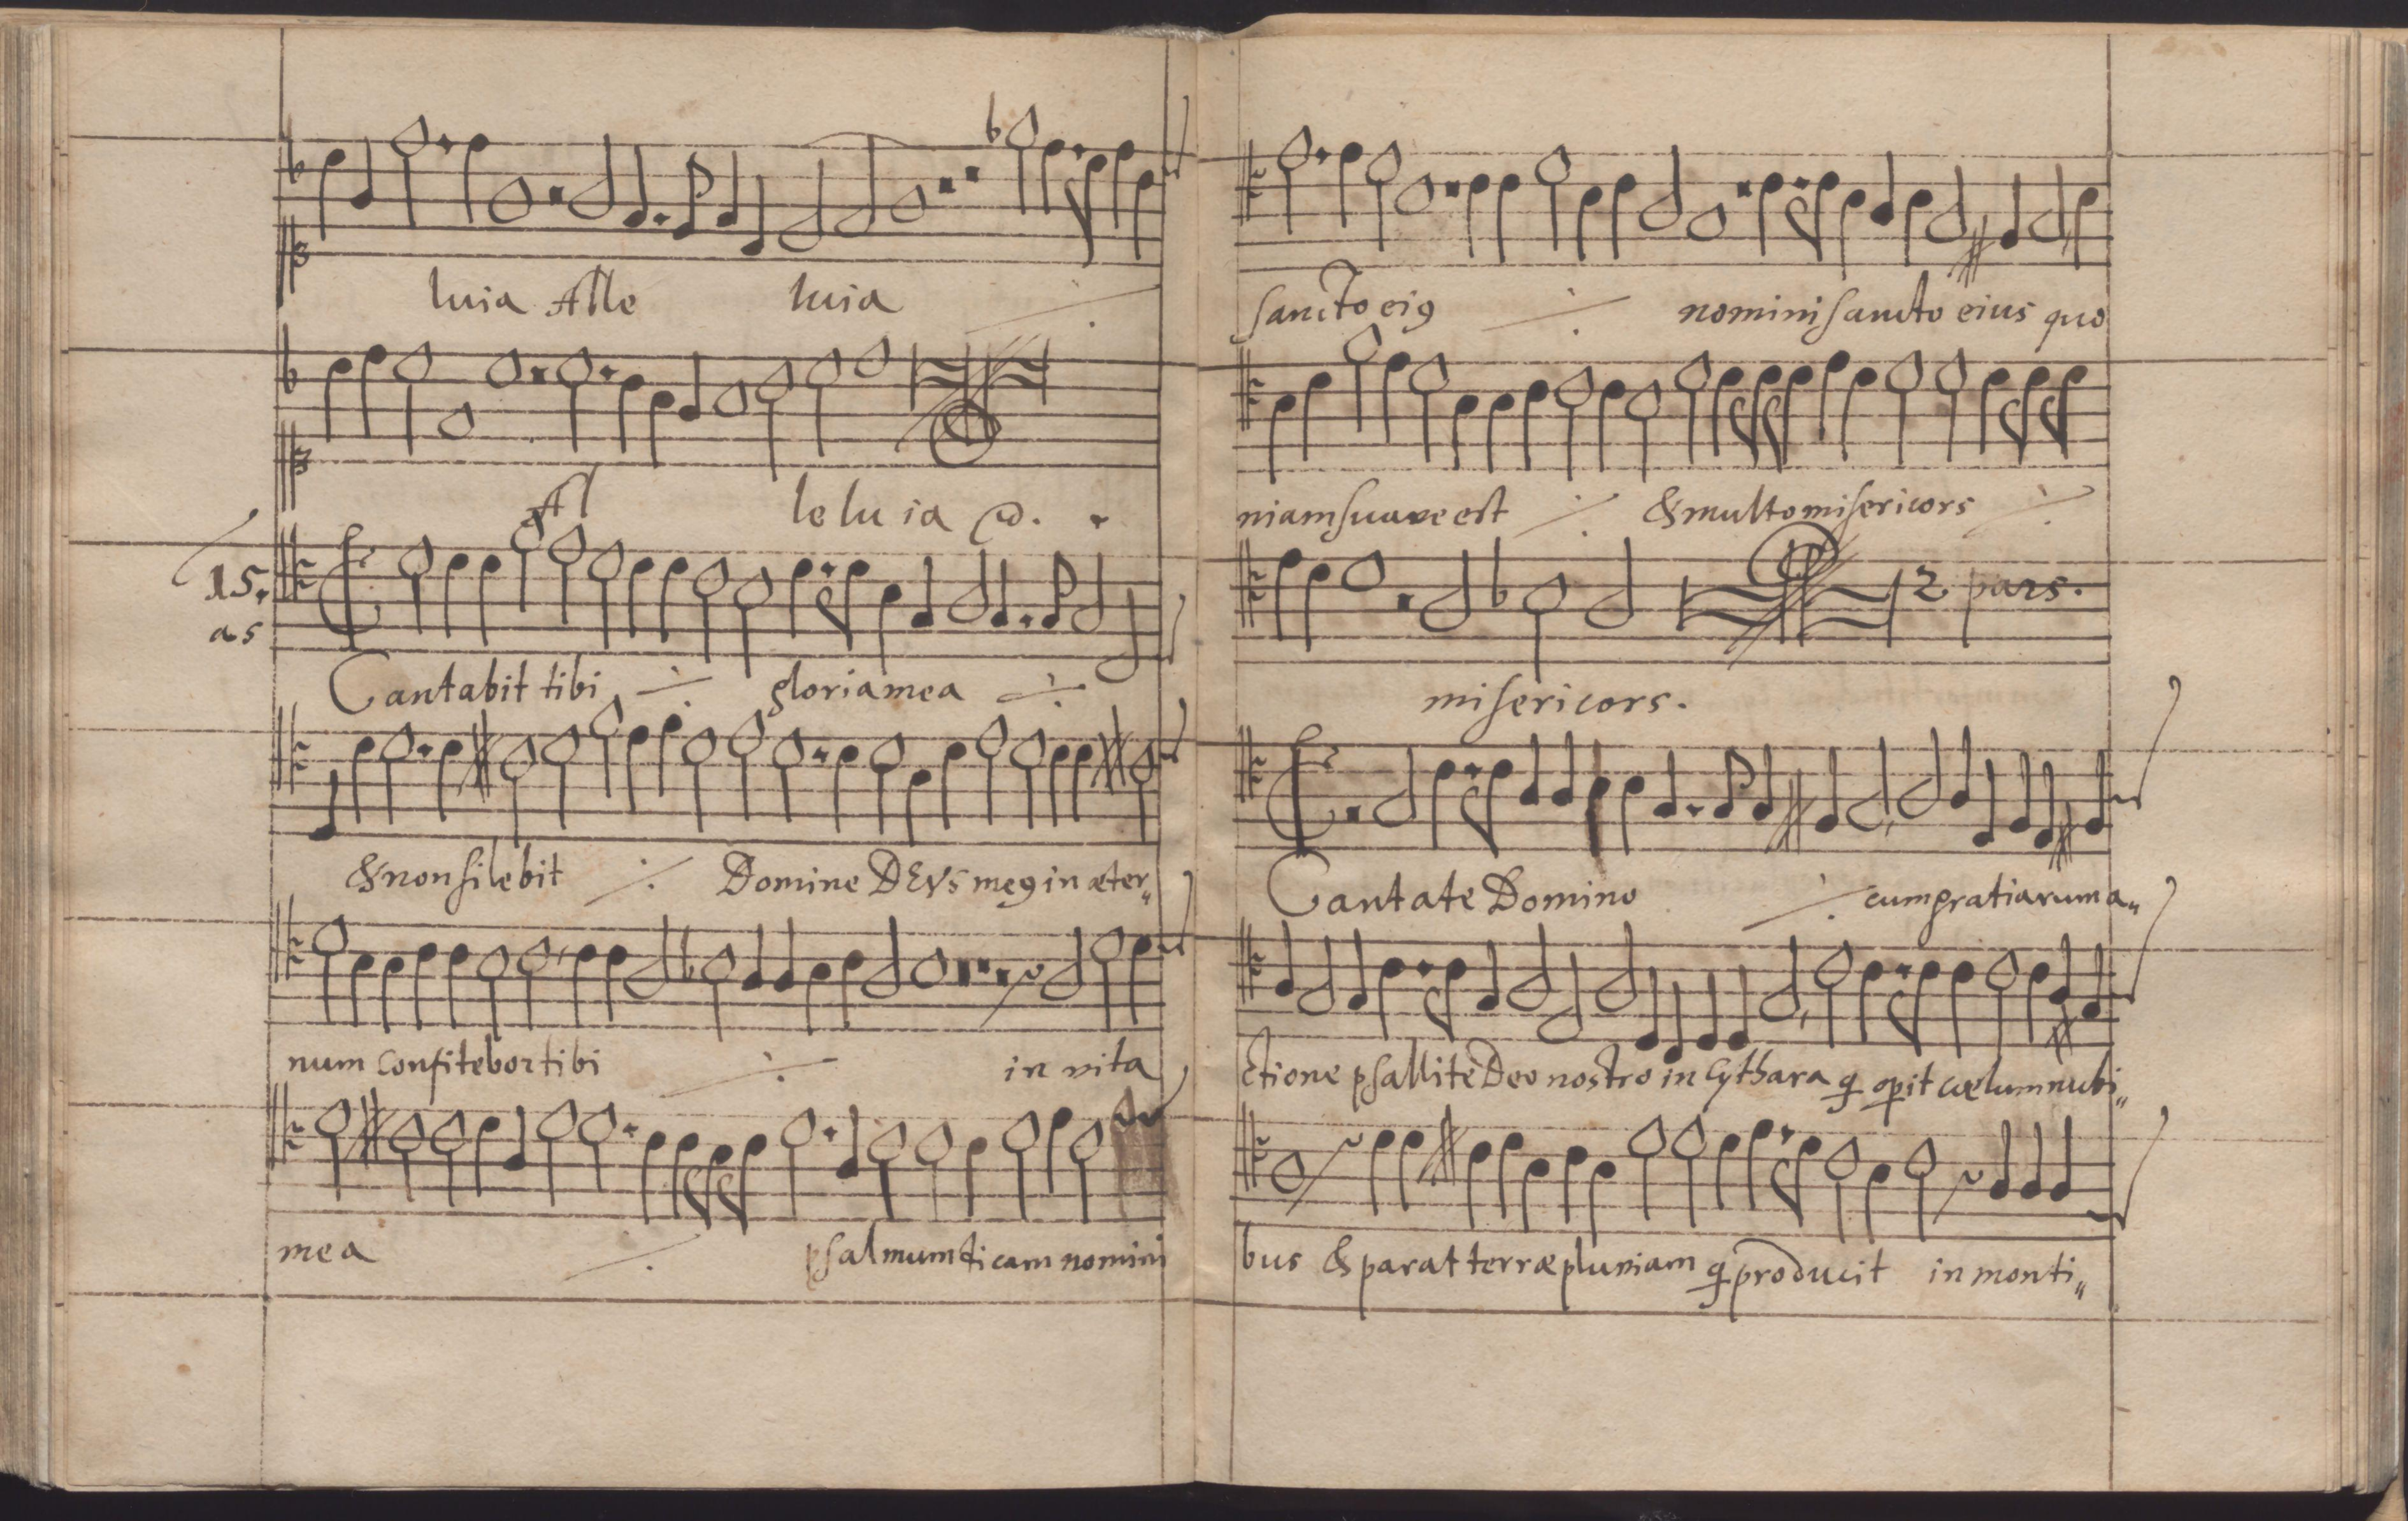 luia Alle luia
Al le lu ia
15.
as
Cantabit tibi gloria mea
& non silebit Domine DEVS meꝯ in æter„
num confitebor tibi in vita
mea psalmum dicam nomini
sancto eiꝯ nomini sancto eius quo
niam suave est & multo misericors
2 pars.
misericors.
Cantate Domino cum gratiarum a„
ctione psallite Deo nostro in Cythara q̲ op̲it cœlum nubi„
bus & parat terræ pluviam q̲ producit in monti„